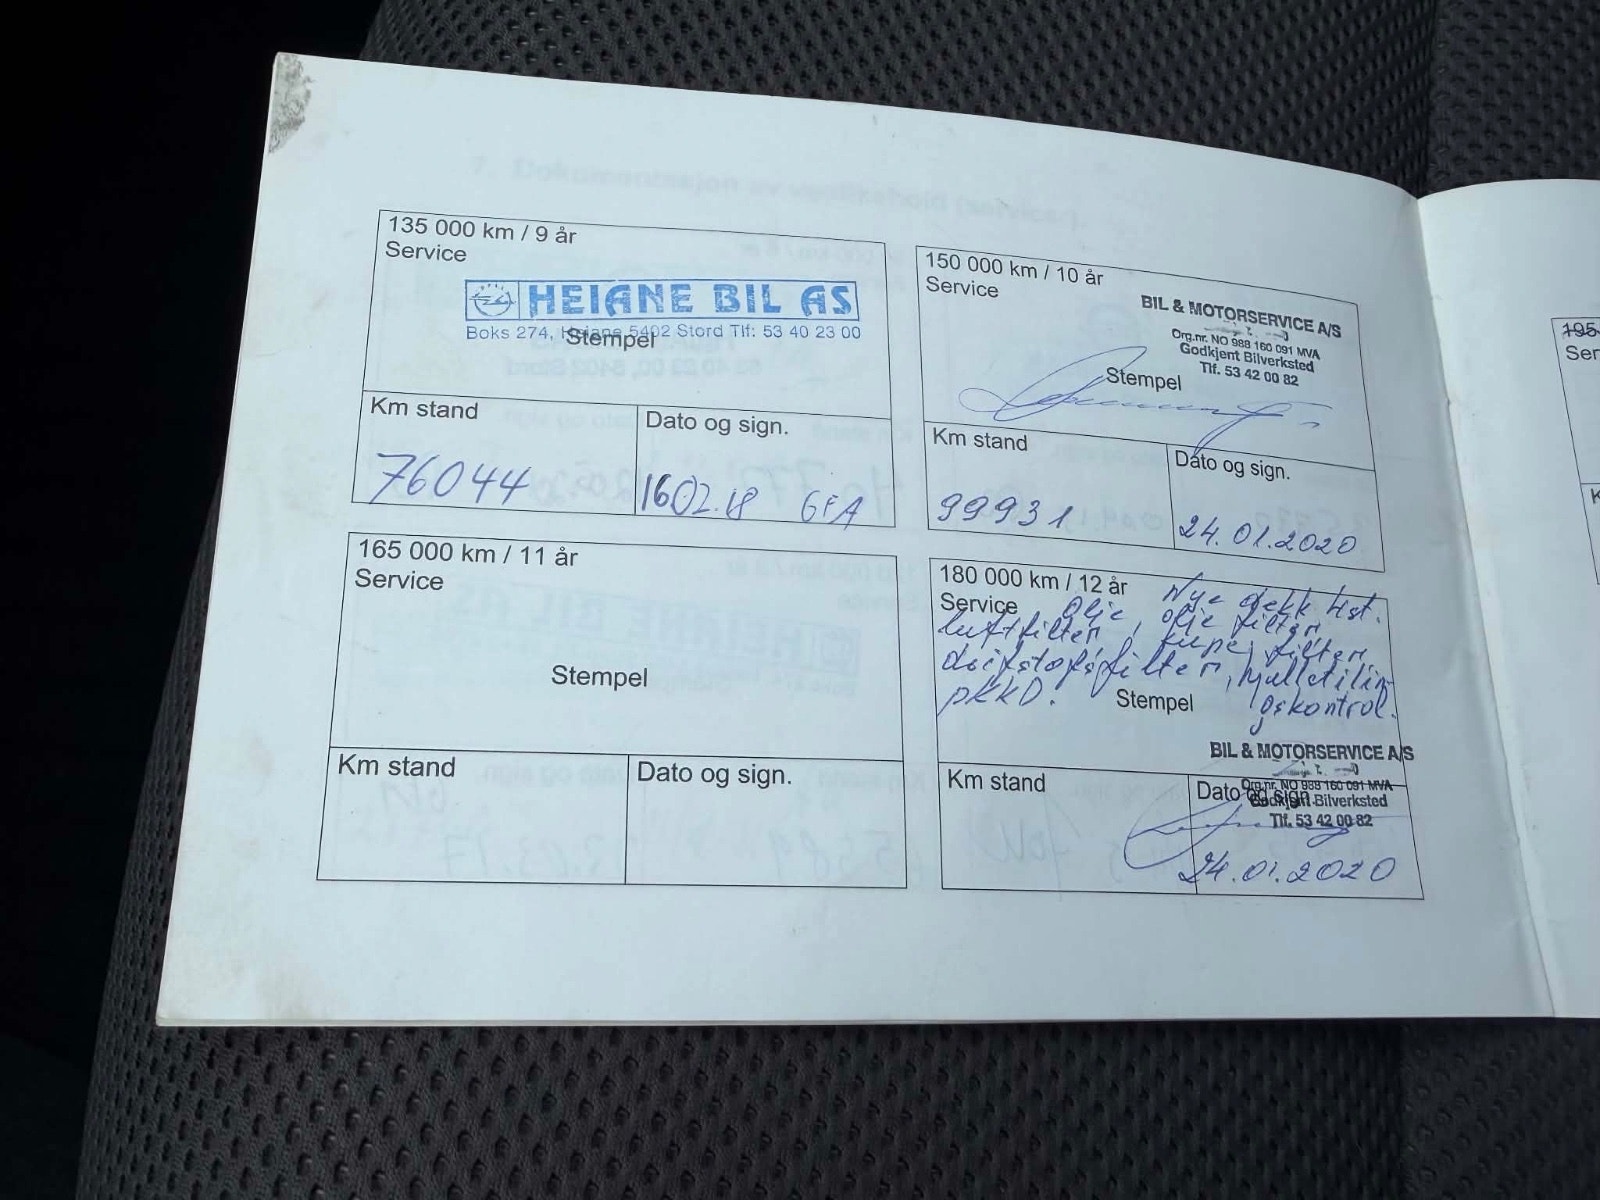 135 000 km / 9 år
Service
HEIANE BIL AS
Boks 274, Heiane 5402 Stord Tlf: 53 40 23 00
Stempel
Km stand
Dato og sign.
76044
16.02.18 GFA
150 000 km / 10 år
Service
BIL & MOTORSERVICE A/S
Org.nr. NO 988 160 091 MVA
Godkjent Bilverksted
Tlf. 53 42 00 82
Stempel
Km stand
Dato og sign.
99931
24.01.2020
165 000 km / 11 år
Service
Stempel
Km stand
Dato og sign.
180 000 km / 12 år
Nye dekk 4st.
Service Olje, olje filter,
luftfilter, kupe filter,
drifstofsfilter, hjulstilin-
pKKO. gskontrol.
Stempel
BIL & MOTORSERVICE A/S
Org.nr. NO 988 160 091 MVA
Godkjent Bilverksted
Tlf. 53 42 00 82
Km stand
Dato og sign.
24.01.2020
195
Ser
K